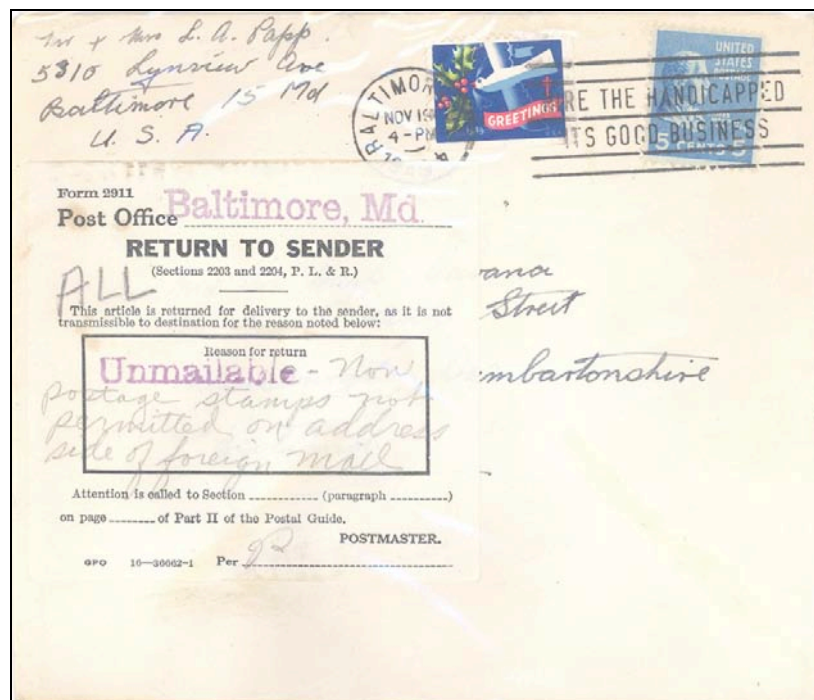 Mr + Mrs L. A. Papp.
5310 Lynview Ave
Baltimore 15 Md
U. S. A.
BALTIMORE
NOV 19
4-PM
GREETINGS
RE THE HANDICAPPED
ITS GOOD BUSINESS
UNITED
STATES
POSTAGE
5 CENTS 5
Form 2911
Post Office Baltimore, Md.
RETURN TO SENDER
(Sections 2203 and 2204, P. L. & R.)
ALL
This article is returned for delivery to the sender, as it is not
transmissible to destination for the reason noted below:
Reason for return
Unmailable - Non
postage stamps not
permitted on address
side of foreign mail
Attention is called to Section (paragraph )
on page of Part II of the Postal Guide.
POSTMASTER.
GPO 16—36662-1 Per
ana
Street
mbartonshire